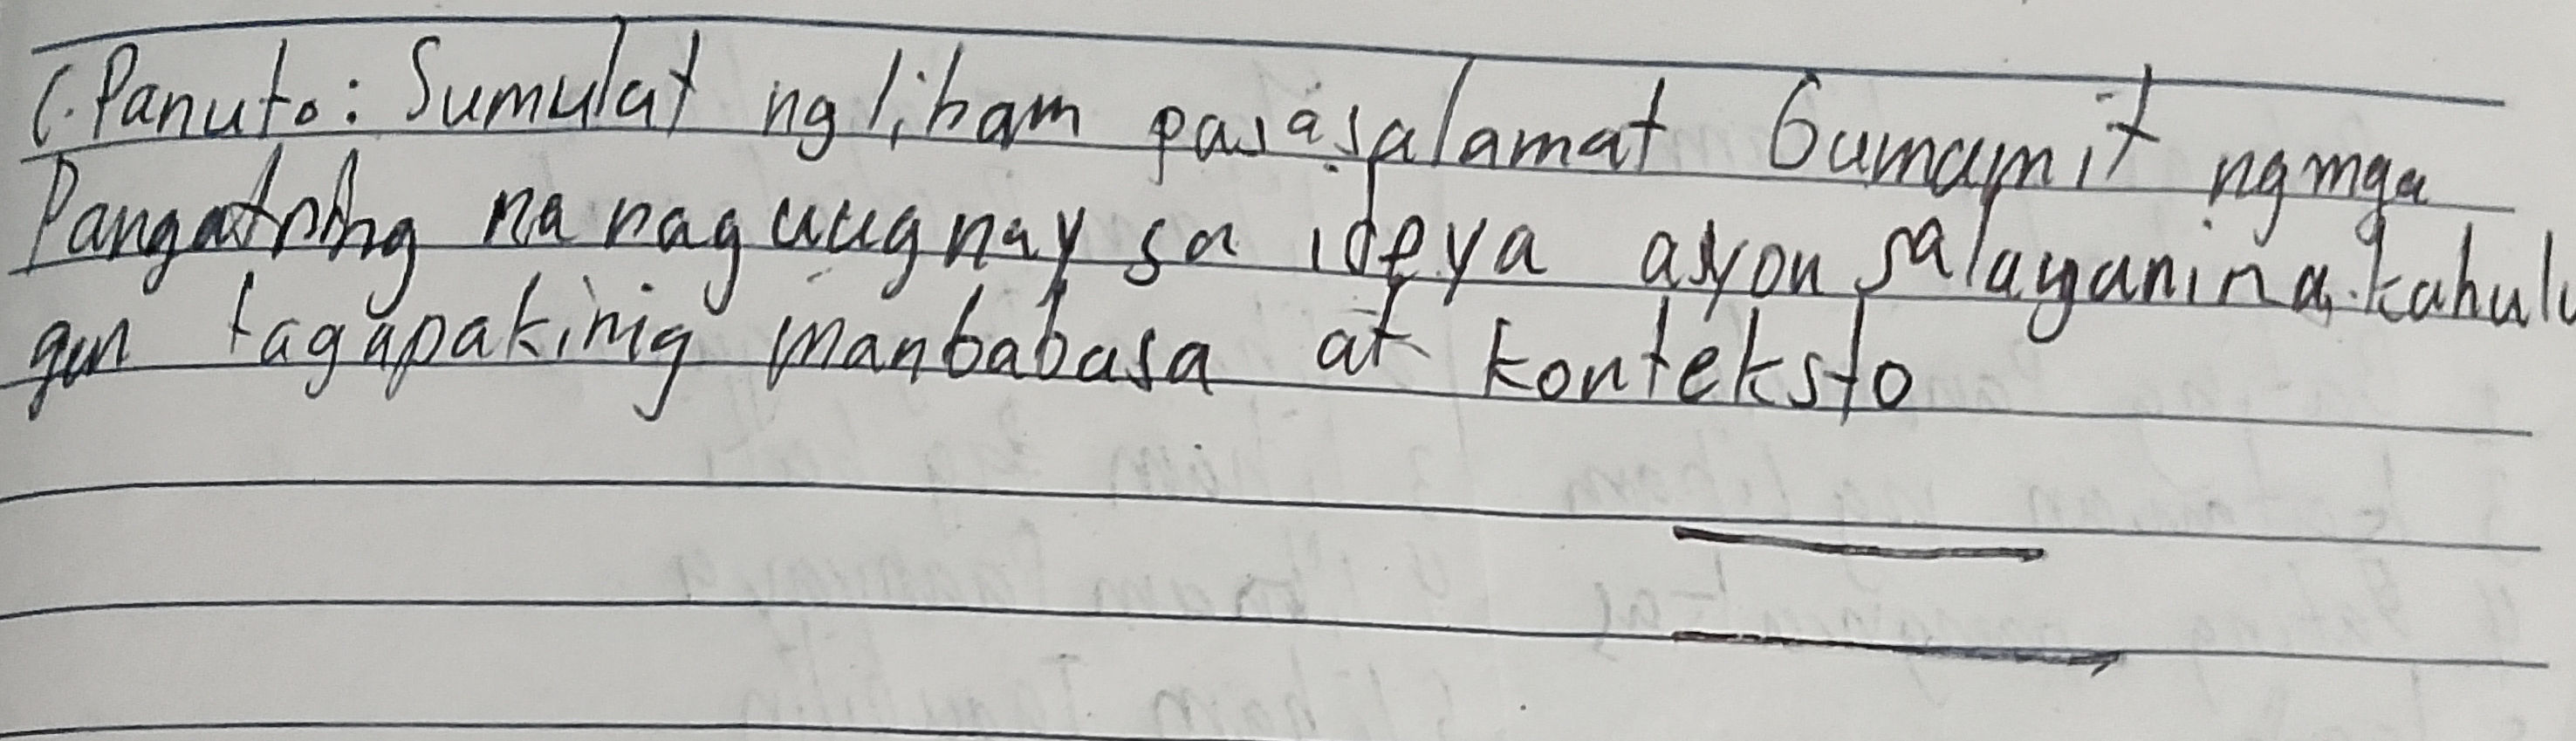 C. Panuto: Sumulat ng liham pasasalamat Gumamit ng mga
Pangatnig na naguugnay sa ideya ayon sa layanin a. kahulu
gan tagapakinig manbabasa at konteksto